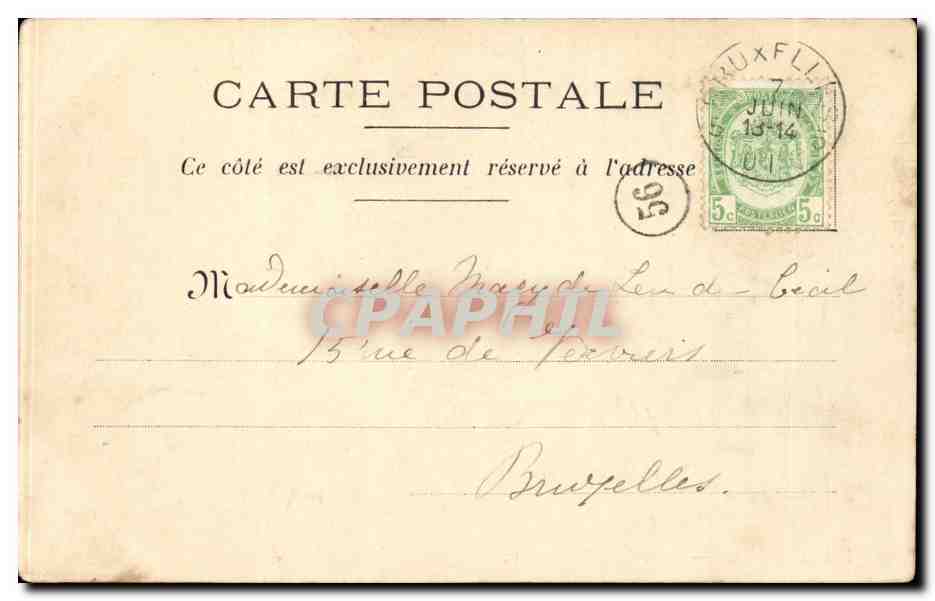 CARTE POSTALE
Ce côté est exclusivement réservé à l'adresse
BRUXELLES
7
JUIN
13-14
01
56
5c 5c
Mademoiselle
CPAPHIL
15 rue de Verviers
Bruxelles.